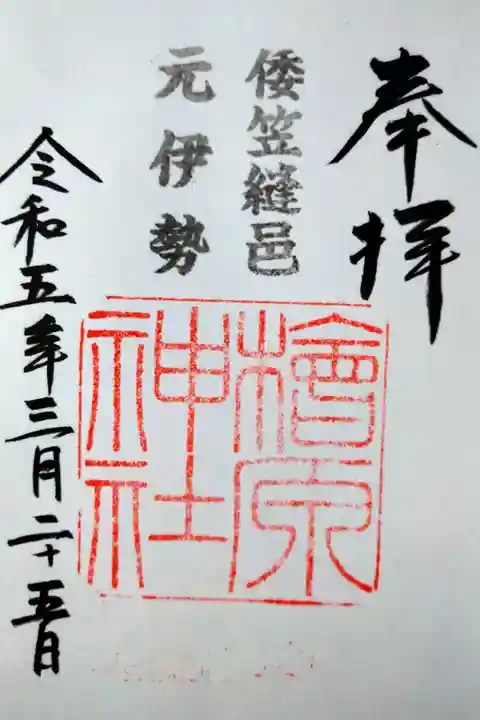 奉拝
倭笠縫邑
元伊勢
檜原
神社
令和五年三月二十五日